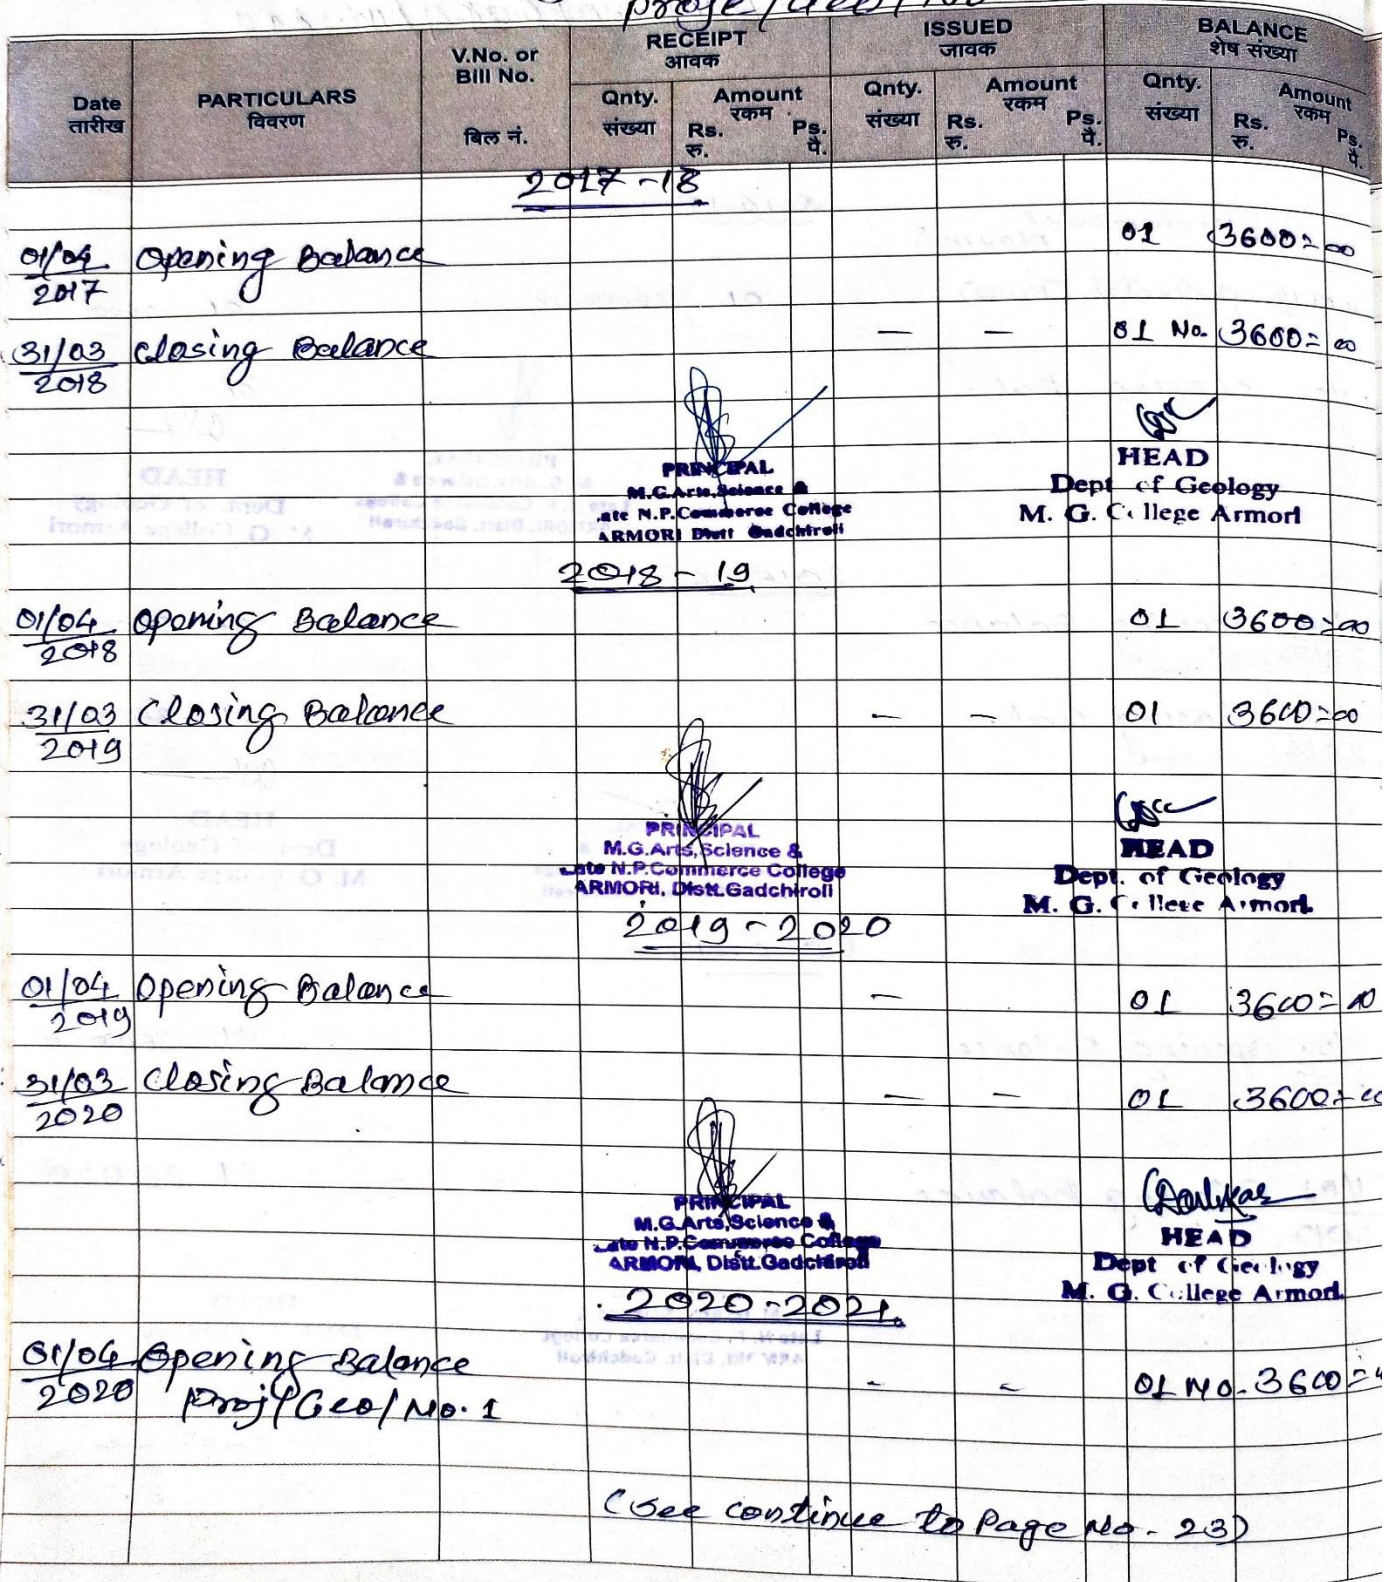 Proje/Geo/No
Date PARTICULARS V.No. or Bill No. RECEIPT ISSUED BALANCE
तारीख विवरण बिल नं. आवक जावक शेष संख्या
Qnty. Amount Qnty. Amount Qnty. Amount
संख्या रकम संख्या रकम संख्या रकम
Rs. Ps. Rs. Ps. Rs. Ps.
रु. पै. रु. पै. रु. पै.
2017-18
01/04/2017 Opening Balance 01 3600=00
31/03/2018 Closing Balance — — 01 No. 3600=00
PRINCIPAL
M.G.Arts,Science &
ate N.P.Commerce College
ARMORI Distt Gadchiroli
HEAD
Dept of Geology
M. G. College Armori
2018-19
01/04/2018 Opening Balance 01 3600=00
31/03/2019 Closing Balance — — 01 3600=00
PRINCIPAL
M.G.Arts,Science &
Late N.P.Commerce College
ARMORI, Distt.Gadchiroli
HEAD
Dept. of Geology
M. G. College Armori.
2019-2020
01/04/2019 Opening Balance — 01 3600=00
31/03/2020 Closing Balance — — 01 3600=00
PRINCIPAL
M.G.Arts,Science &
Late N.P.Commerce College
ARMORI, Distt.Gadchiroli
HEAD
Dept of Geology
M. G. College Armori.
2020-2021.
01/04/2020 Opening Balance - - 01 No. 3600=
Proj/Geo/No. 1
(See continue to Page No. 23)